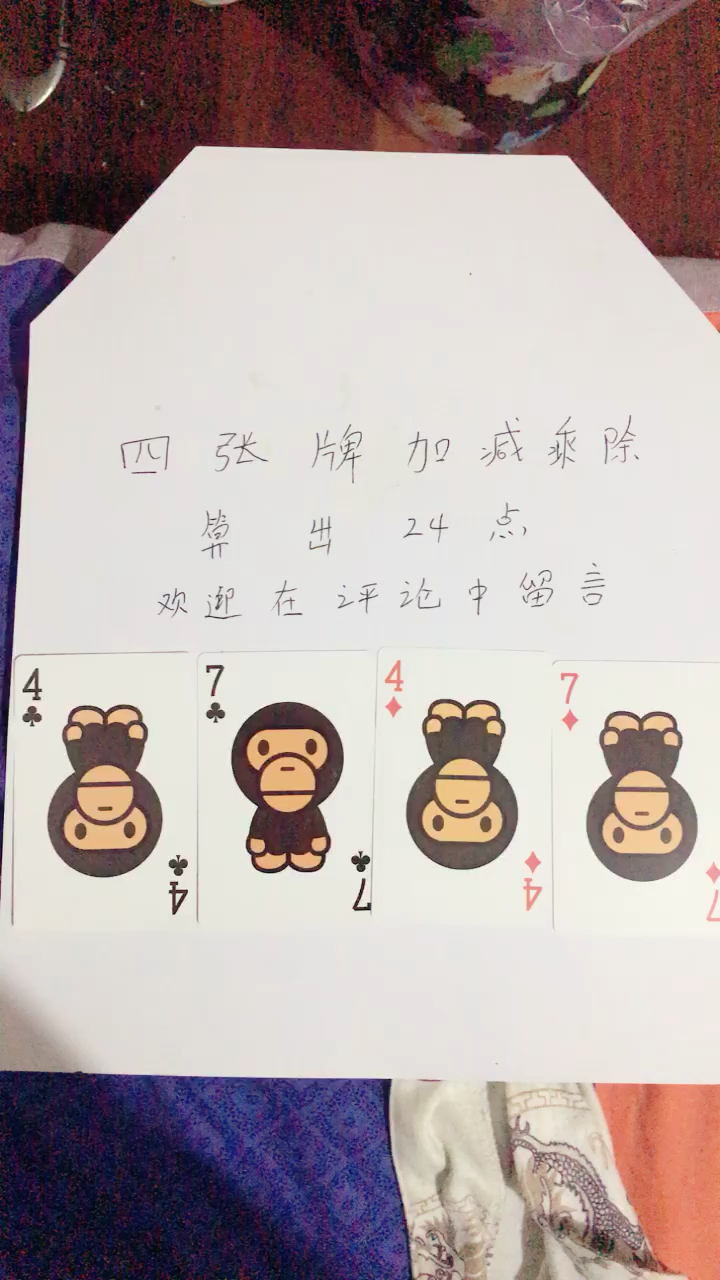 四张牌加减乘除
算出24点
欢迎在评论中留言
4 7 4 7
4 7 4 7